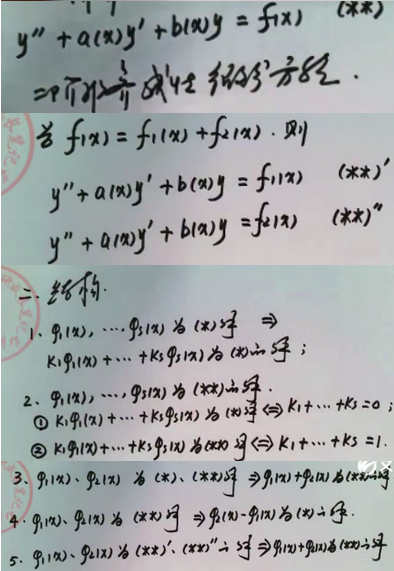 y″ + a(x)y′ + b(x)y = f(x) (**)
二阶非齐线性微分方程.
若 f(x) = f₁(x) + f₂(x). 则
y″ + a(x)y′ + b(x)y = f₁(x) (**)′
y″ + a(x)y′ + b(x)y = f₂(x) (**)″
二、结构.
1、φ₁(x), …, φs(x) 为 (*) 解 ⇒
k₁φ₁(x) + … + ksφs(x) 为 (*) 之解;
2、φ₁(x), …, φs(x) 为 (**) 之解.
① k₁φ₁(x) + … + ksφs(x) 为 (*) 解 ⇔ k₁ + … + ks = 0;
② k₁φ₁(x) + … + ksφs(x) 为 (**) 解 ⇔ k₁ + … + ks = 1.
3、φ₁(x)、φ₂(x) 为 (*)、(**) 解 ⇒ φ₁(x) + φ₂(x) 为 (**) 之解
4、φ₁(x)、φ₂(x) 为 (**) 解 ⇒ φ₂(x) - φ₁(x) 为 (*) 之解.
5、φ₁(x)、φ₂(x) 为 (**)′、(**)″ 之解 ⇒ φ₁(x) + φ₂(x) 为 (**) 之解